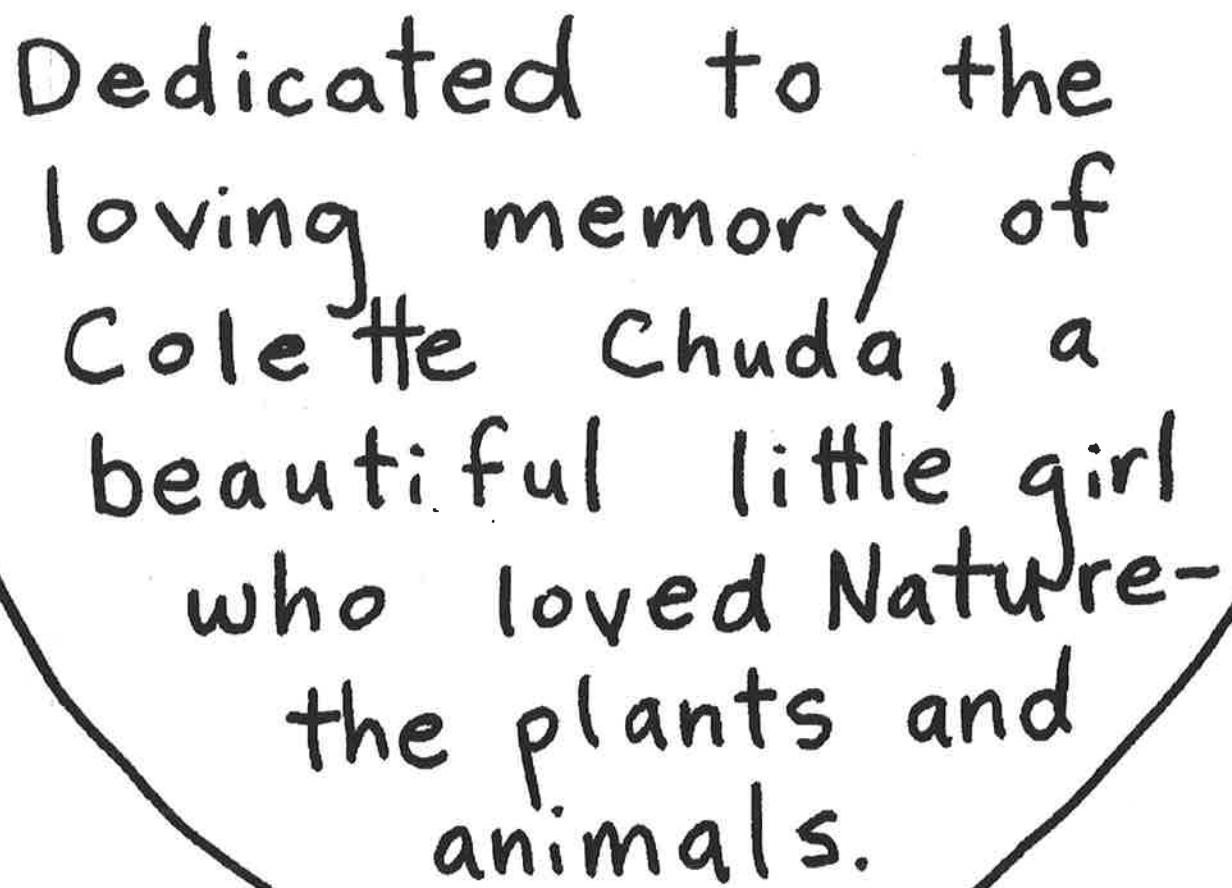 Dedicated to the
loving memory of
Colette Chuda, a
beautiful little girl
who loved Nature-
the plants and
animals.